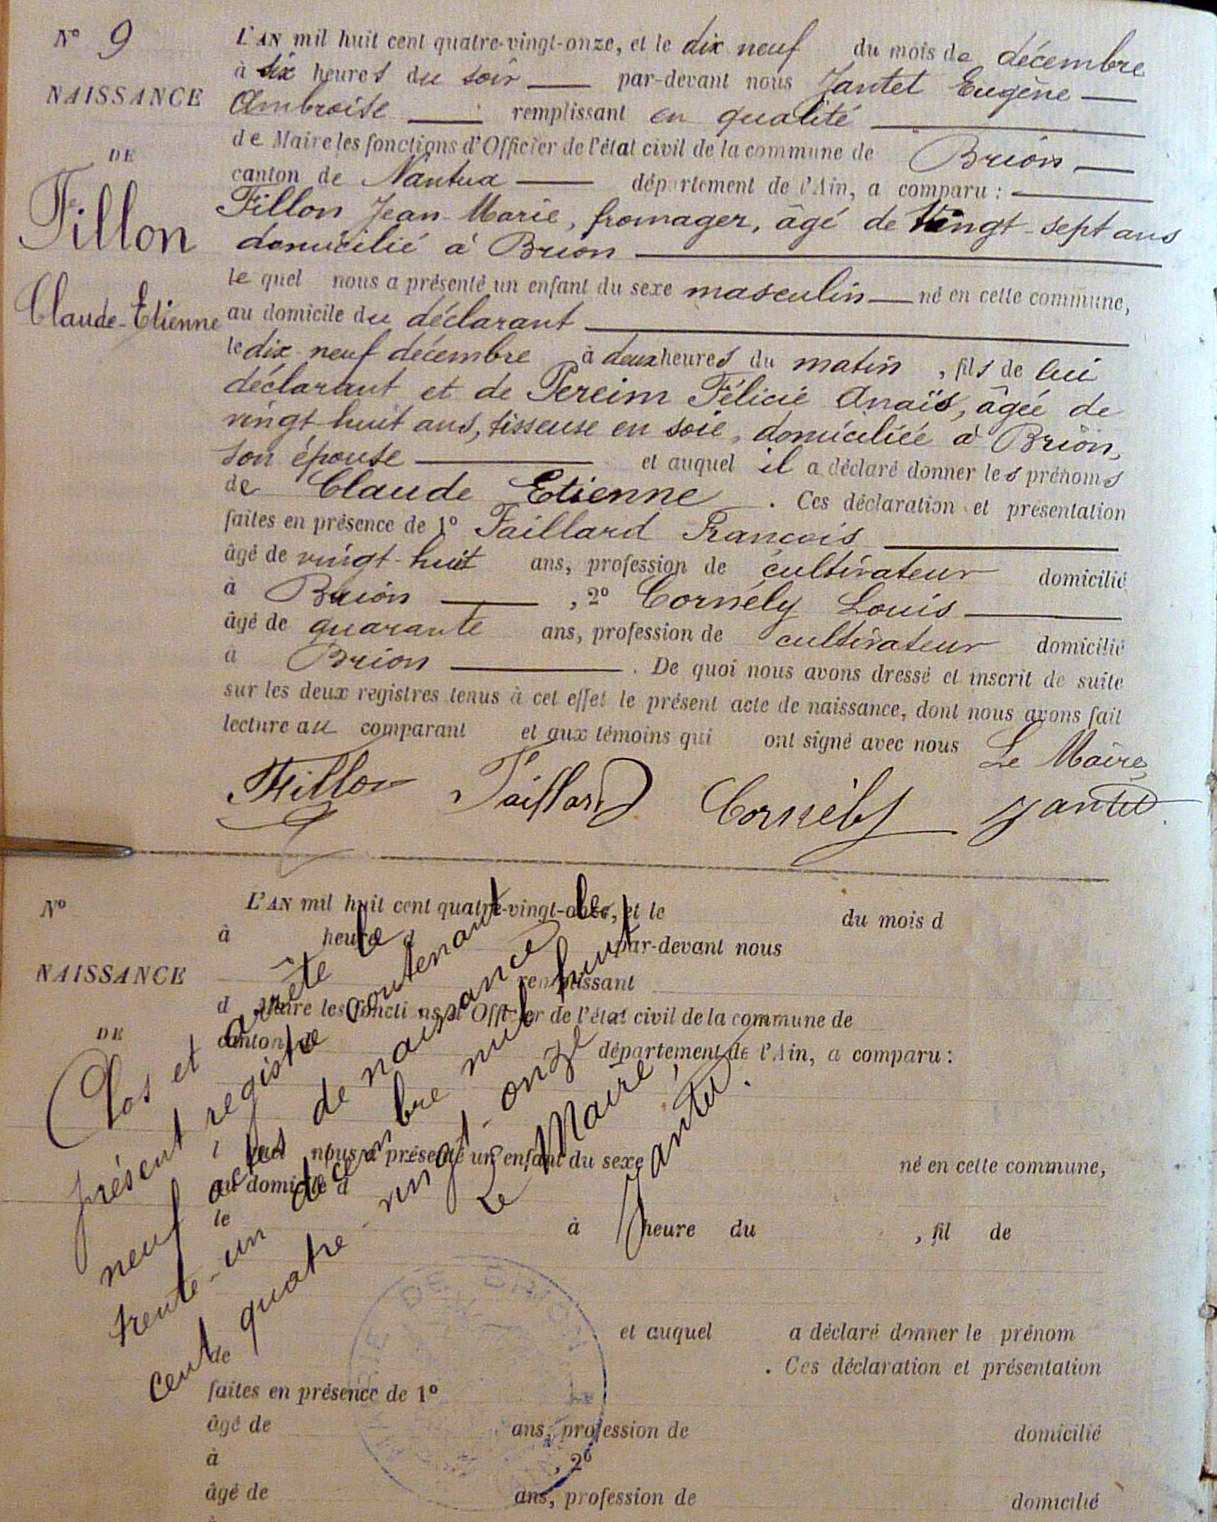 N° 9
NAISSANCE
DE
Fillon
Claude-Etienne
L'AN mil huit cent quatre-vingt-onze, et le dix neuf du mois de décembre
à six heures du soir par-devant nous Jantet Eugène
Ambroise remplissant en qualité
de Maire les fonctions d'Officier de l'état civil de la commune de Brion
canton de Nantua département de l'Ain, a comparu :
Fillon Jean-Marie, fromager, âgé de vingt-sept ans
domicilié à Brion
le quel nous a présenté un enfant du sexe masculin né en cette commune,
au domicile du déclarant
le dix neuf décembre à deux heures du matin, fils de lui
déclarant et de Pereim Félicie Anaïs, âgée de
vingt-huit ans, tisseuse en soie, domiciliée à Brion,
son épouse et auquel il a déclaré donner les prénoms
de Claude Etienne. Ces déclaration et présentation
faites en présence de 1° Faillard François
âgé de vingt-huit ans, profession de cultivateur domicilié
à Brion, 2° Cornély Louis
âgé de quarante ans, profession de cultivateur domicilié
à Brion. De quoi nous avons dressé et inscrit de suite
sur les deux registres tenus à cet effet le présent acte de naissance, dont nous avons fait
lecture au comparant et aux témoins qui ont signé avec nous Le Maire,
Fillon Faillard Cornély Jantet
N°
NAISSANCE
DE
L'AN mil huit cent quatre-vingt-onze, et le du mois d
à heure d par-devant nous
remplissant
d Maire les fonctions d'Officier de l'état civil de la commune de
canton d département de l'Ain, a comparu :
l quel nous a présenté un enfant du sexe né en cette commune,
au domicile d
le à heure du , fil de
et auquel a déclaré donner le prénom
de . Ces déclaration et présentation
faites en présence de 1°
âgé de ans, profession de domicilié
à , 2°
âgé de ans, profession de domicilié
Clos et arrêté le
présent registre contenant les
neuf actes de naissance
trente-un décembre mil huit
cent quatre-vingt-onze
Le Maire,
Jantet.
DE BRION